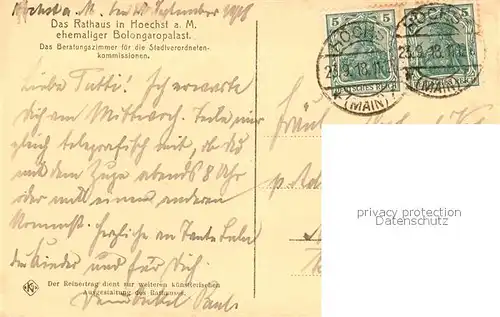 Höchst a. M. den 23. September 1918
Das Rathaus in Hoechst a. M.
ehemaliger Bolongaropalast.
Das Beratungszimmer für die Stadtverordneten-
kommissionen.
5 5
5 5
HÖCHST
23.9.18.
* (MAIN)
DEUTSCHES REICH
HÖCHST
23.9.18.
* (MAIN)
Liebe Tutti! Ich erwarte
Dich am Mittwoch. Teile mir
gleich telegrafisch mit, ob du
mit dem Zuge abends 8 Uhr
oder mit einem anderen
kommst. Herzliche an Tante
der Kinder und für Dich
Dein Onkel Paul
Fräul
privacy protection
Der Reinertrag dient zur weiteren künstlerischen
Ausgestaltung des Rathauses.